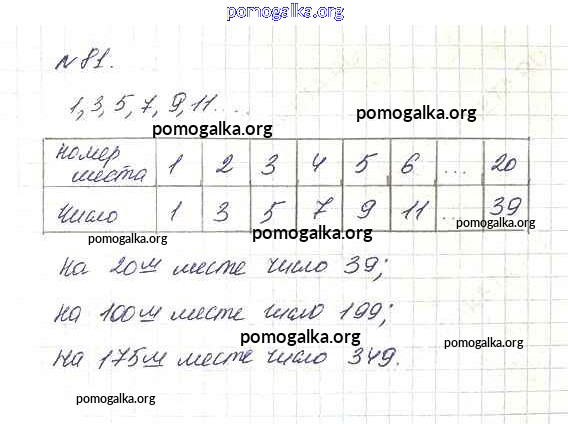 pomogalka.org
№81.
1, 3, 5, 7, 9, 11 ....
pomogalka.org
pomogalka.org
номер места 1 2 3 4 5 6 ... 20
число 1 3 5 7 9 11 ... 39
pomogalka.org
pomogalka.org
pomogalka.org
на 20м месте число 39;
на 100м месте число 199;
pomogalka.org
pomogalka.org
на 175м месте число 349.
pomogalka.org